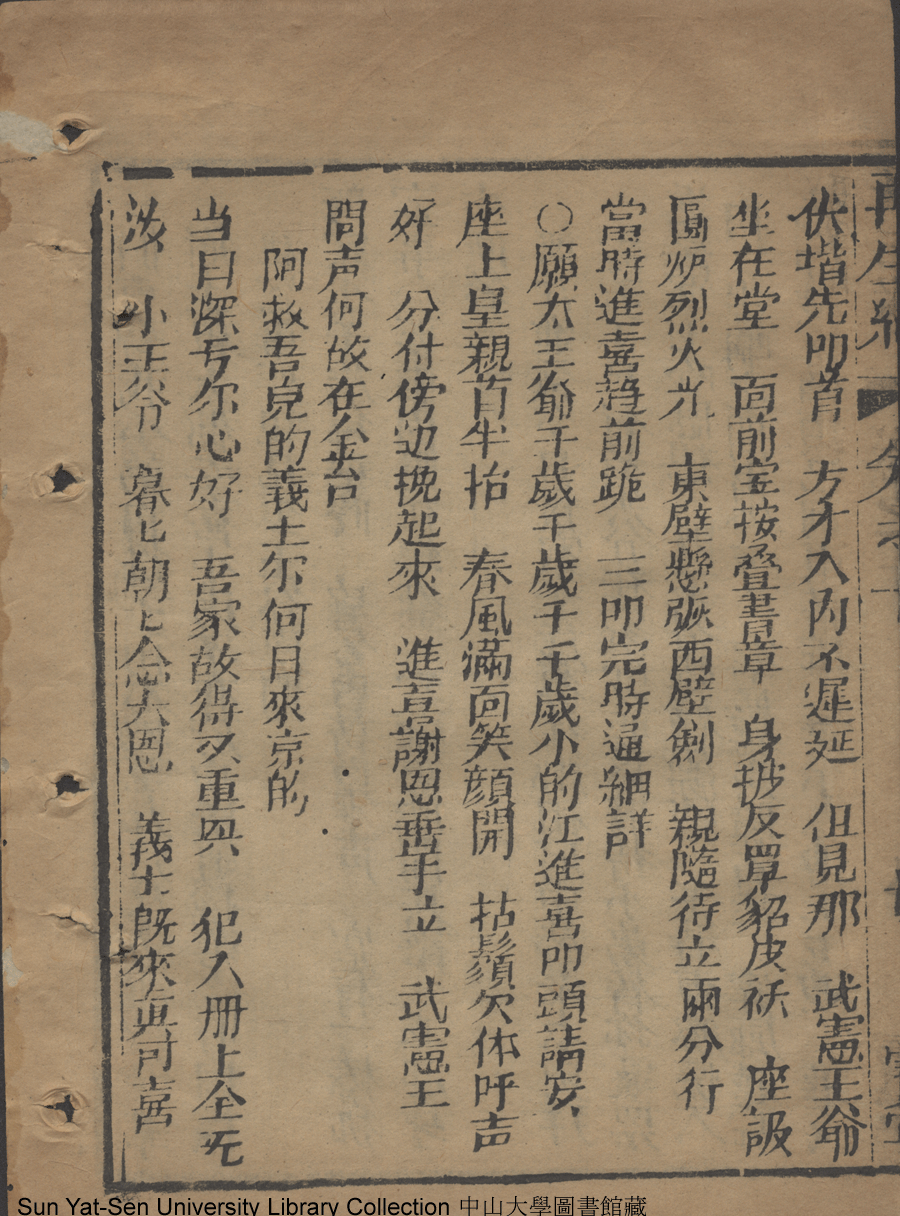 再生緣 卷之十
伏堦先叩首 方才入內不遲延 但見那 武憲王爺
坐在堂 面前宝按叠書章 身披反罩貂皮袄 座設
圍炉烈火光 東壁懸張西壁劍 親隨待立兩分行
當時進喜趋前跪 三叩完時逼細詳
○願太王爺千歲千歲千千歲小的江進喜叩頭請安
座上皇親首半抬 春風滿面笑顔開 拈鬚欠体呼声
好 分付傍边挽起來 進喜謝恩垂手立 武憲王
問声何故在金台
阿救吾兒的義士尔何日來京的
当日深亏尔心好 吾家故得又重興 犯人册上全无
汝 小王爷 暮匕朝匕念大恩 義士既來真可喜
Sun Yat-Sen University Library Collection 中山大學圖書館藏